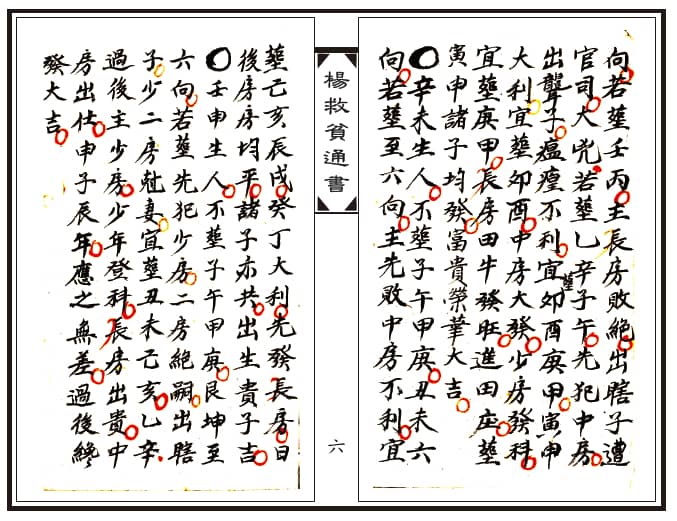 向若塟壬丙主長房敗絶出瞎子遭
官司大兇若塟乙辛子午先犯中房
出聾子瘟瘟不利宜塟卯酉庚甲寅申
大利宜塟卯酉中房大發少房發科
宜塟庚甲長房田牛發旺進田庄塟
寅申諸子均發富貴榮華大吉
○辛未生人不塟子午甲庚丑未六
向若塟至六向主先敗中房不利宜
楊救貧通書
六
塟己亥辰戌癸丁大利先發長房日
後房房均平諸子亦共出生貴子吉
○壬申生人不塟子午甲庚艮坤至
六向若塟先犯少房二房絶嗣出瞎
子少二房尅妻宜塟丑未己亥乙辛
過後主少房少年登科長房出貴中
房出仕申子辰年應之無差過後終
發大吉